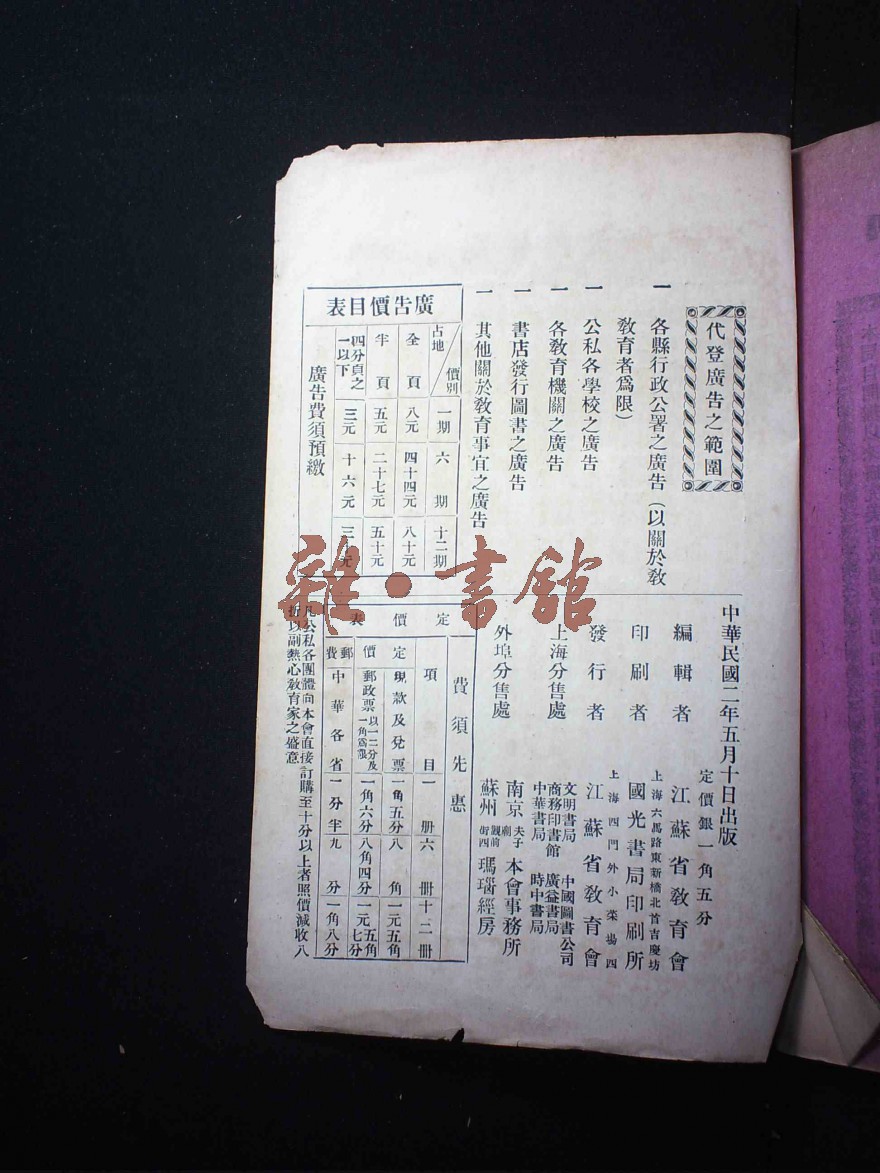 代登廣告之範圍
一 各縣行政公署之廣告（以關於教
教育者爲限）
一 公私各學校之廣告
一 各教育機關之廣告
一 書店發行圖書之廣告
一 其他關於教育事宜之廣告
廣告價目表
價別 占地 一期 六期 十二期
全頁 八元 四十四元 八十元
半頁 五元 二十七元 五十元
四分頁之一以下 三元 十六元 三
元
廣告費須預繳
中華民國二年五月十日出版
定價銀一角五分
編輯者 江蘇省教育會
上海六馬路東新橋北首吉慶坊
印刷者 國光書局印刷所
上海西門外小菜場西
發行者 江蘇省教育會
上海分售處 文明書局 中國圖書公司
商務印書館 廣益書局
中華書局 時中書局
外埠分售處 南京夫子廟 本會事務所
蘇州觀前街西 瑪瑙經房
定價表
費須先惠
項目 一冊 六冊 十二冊
定價 現款及兌票 一角五分 八角 一元五角
郵政票以一二分及一角爲限 一角六分 八角四分 一元五角七分
郵費 中華各省 一分半 九分 一角八分
凡公私各團體向本會直接訂購至十分以上者照價減收八
折以副熱心教育家之盛意
雜·書館